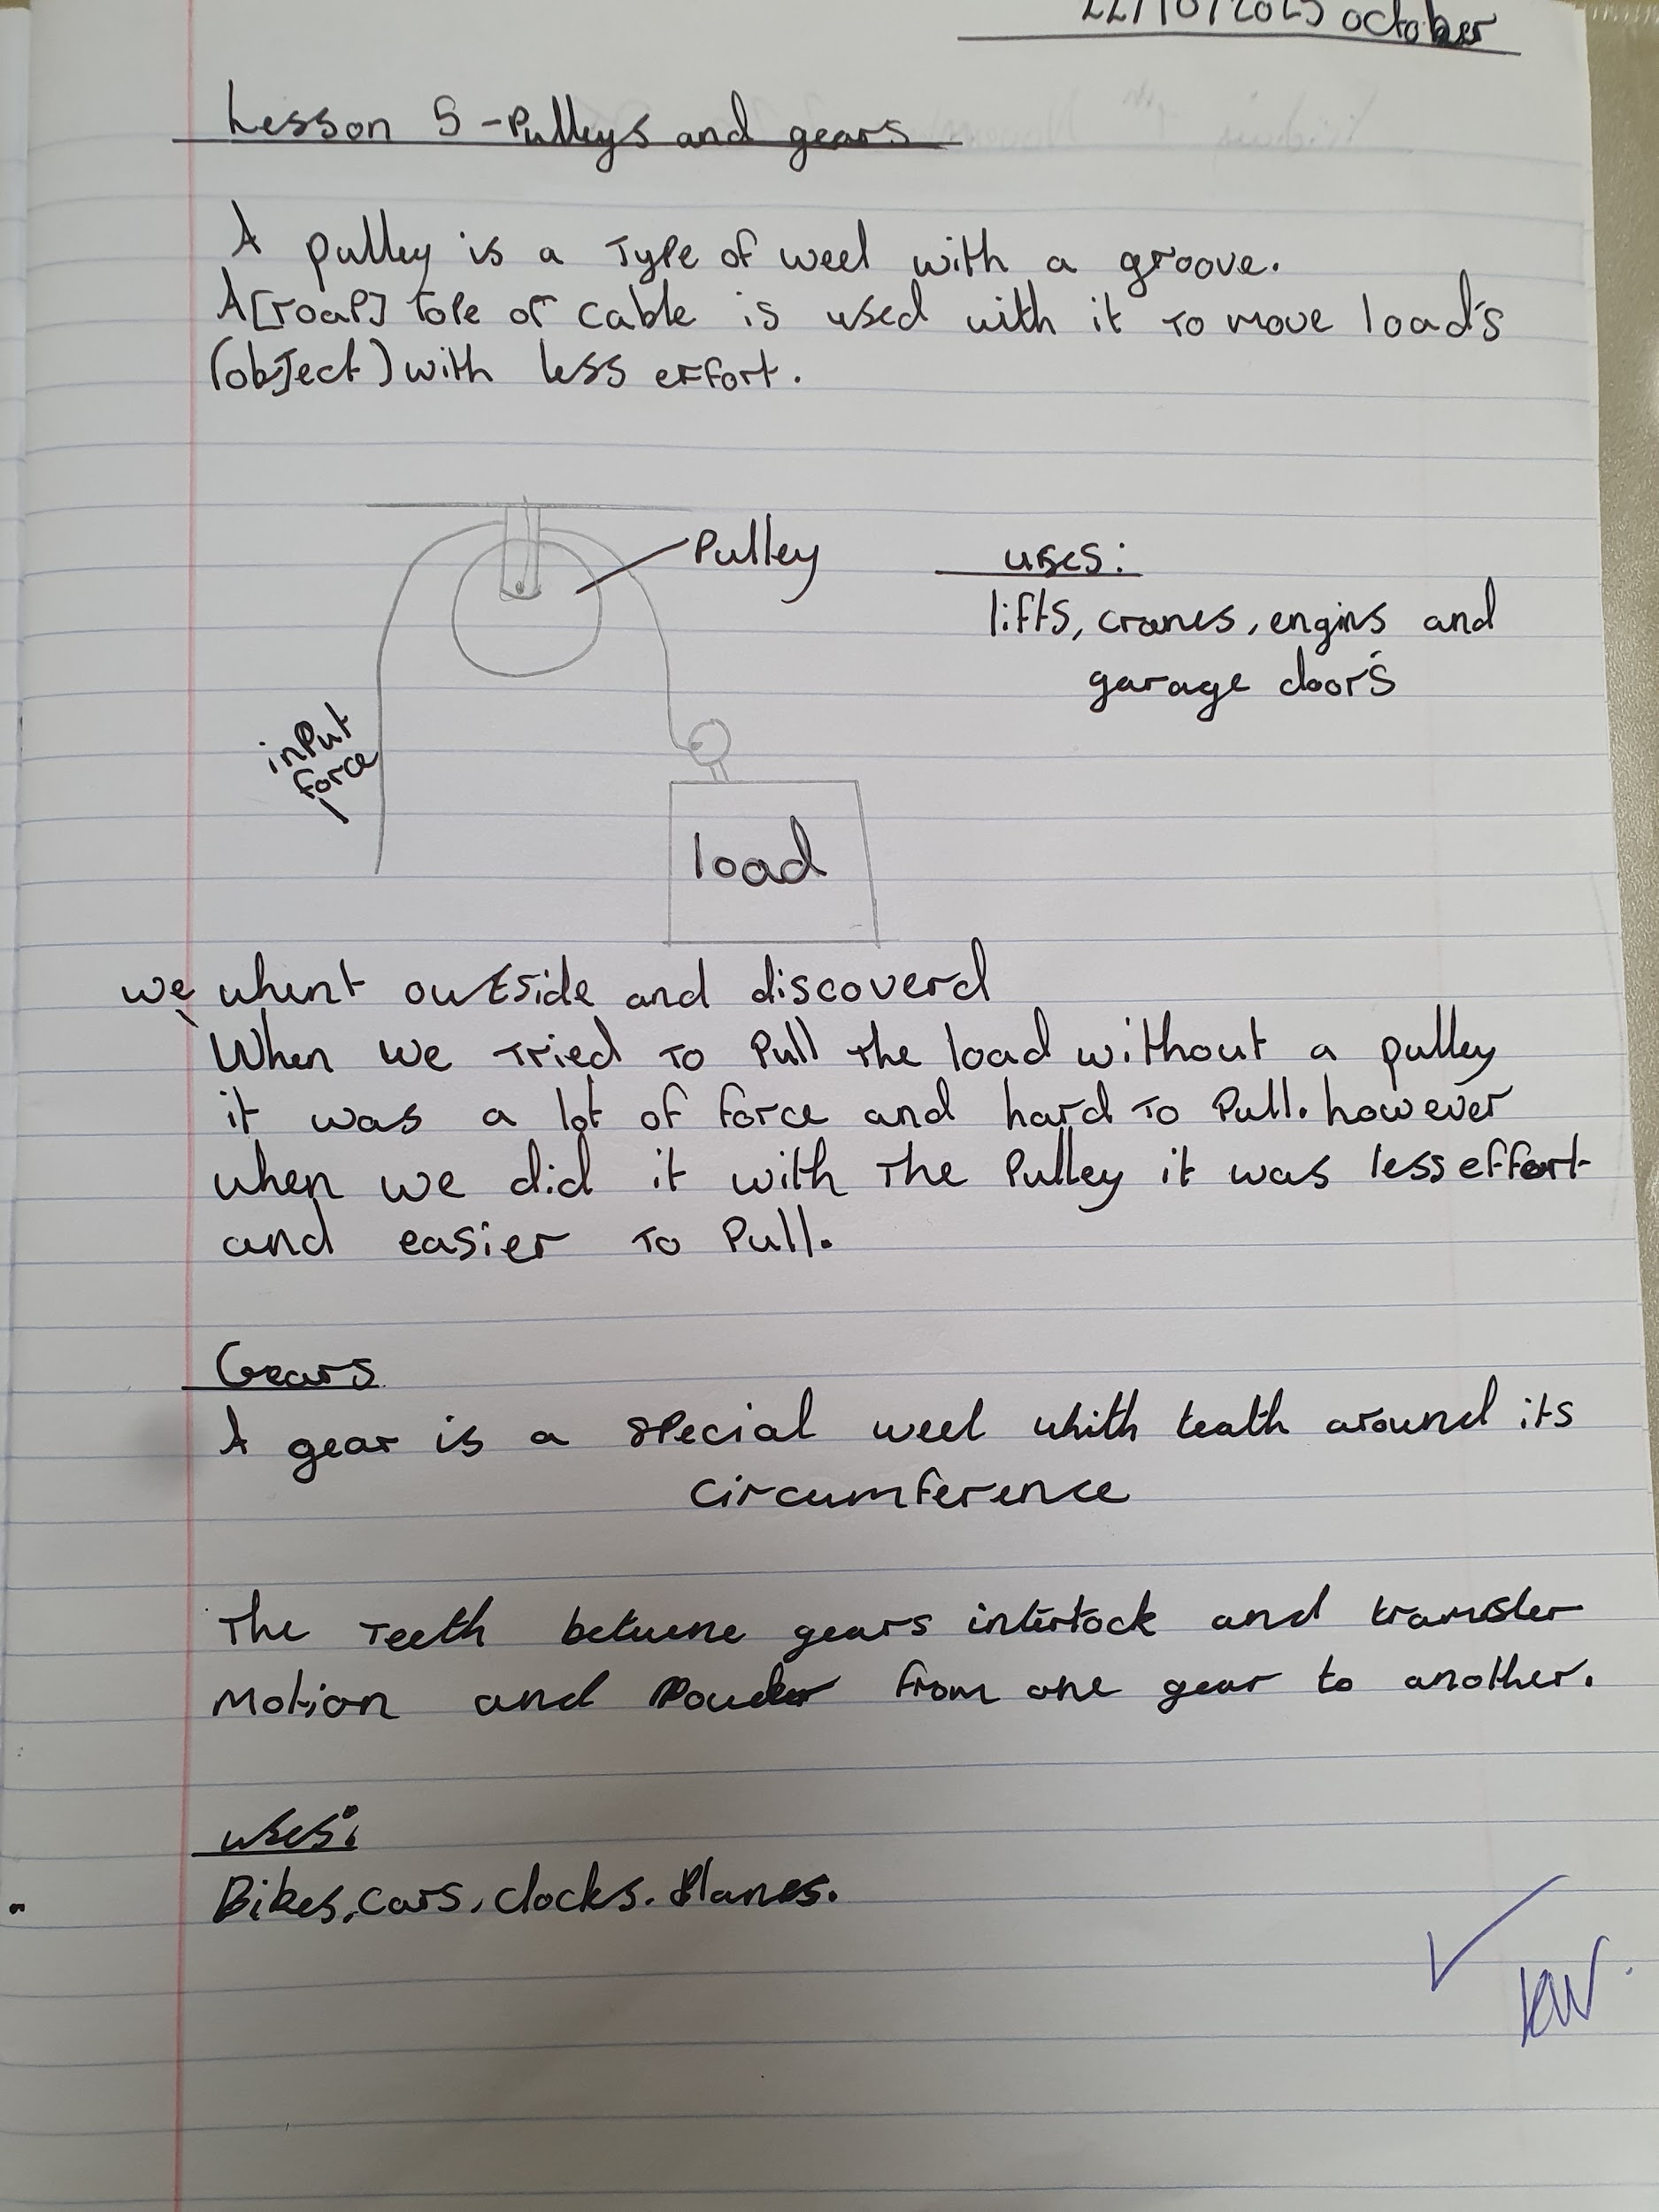 22/10/2025 october
Lesson 5 - Pulleys and gears
A pulley is a Type of weel with a groove.
A [roap] rope or cable is used with it To move load's
(object) with less effort.
Pulley
uses:
lifts, cranes, engins and
garage door's
input
force
load
we whent outside and discoverd
When we Tried To Pull The load without a pulley
it was a lot of force and hard To Pull. however
when we did it with The Pulley it was less effort
and easier To Pull.
Gears
A gear is a special weel whith teath around its
circumference
The Teeth betwene gears interlock and transfer
Motion and Power from one gear to another.
uses:
Bikes, cars, clocks. Planes.
KW.